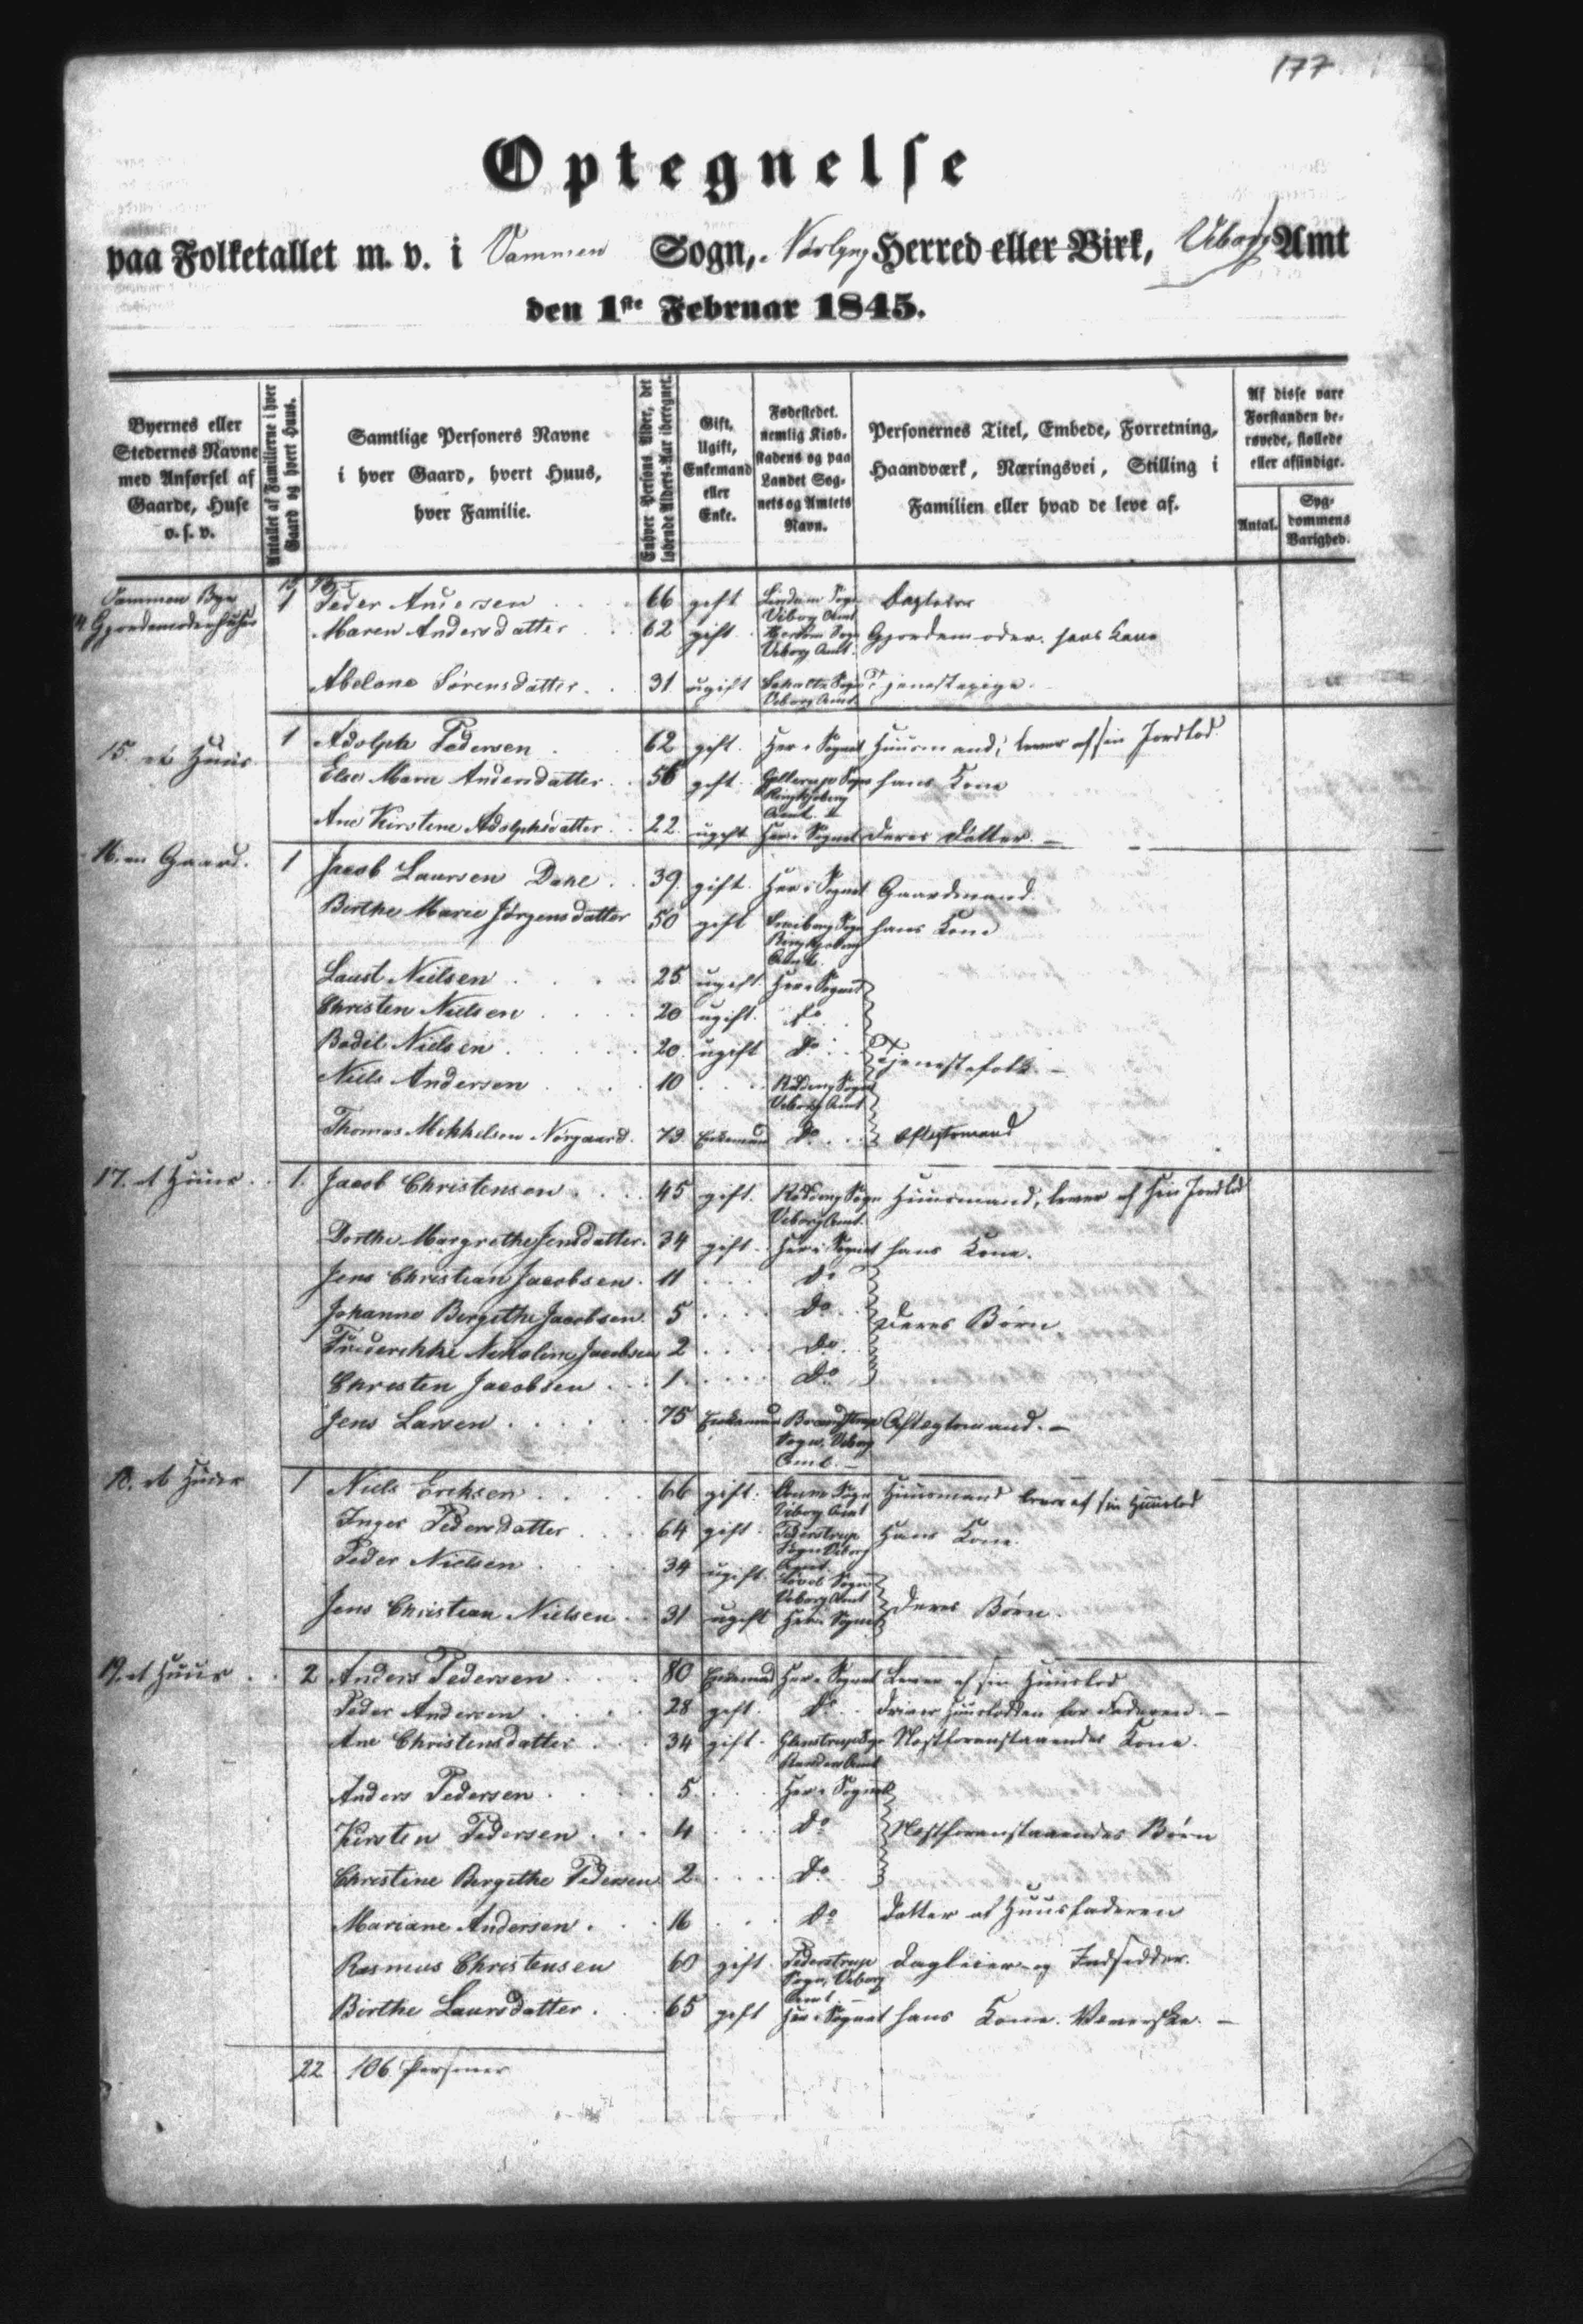 177
Optegnelse
paa Folketallet m. v. i Vammen Sogn, Nørlyng Herred eller Birk, Viborg Amt
den 1ste Februar 1845.
Byernes eller Stedernes Navne med Anførsel af Gaarde, Huse o. s. v.
Antallet af Familierne i hver Gaard og hvert Huus.
Samtlige Personers Navne i hver Gaard, hvert Huus, hver Familie.
Enhver Persons Alder, det løbende Alders-Aar iberegnet.
Gift, Ugift, Enkemand eller Enke.
Fødestedet. nemlig Kiøbstadens og paa Landet Sognets og Amtets Navn.
Personernes Titel, Embede, Forretning, Haandværk, Næringsvei, Stilling i Familien eller hvad de leve af.
Af disse vare Forstanden berøvede, fiollede eller afsindige.
Antal.
Sygdommens Varighed.
Vammen Bye
14 Gjordemoderhuset 1 Peder Andersen 66 gift Lindum Sogn Viborg Amt Dagleier
Maren Andersdatter 62 gift Sogn Viborg Amt Gjordemoder. hans Kone
Abelone Sørensdatter 31 ugift Sogn Viborg Amt Tjenestepige
15. et Huus 1 Adolph Pedersen 62 gift Her i Sognet Huusmand, lever af sin Jordlod
Else Marie Andersdatter 56 gift Gjellerup Sogn Ringkjøbing Amt hans Kone
Ane Kirstine Adolphsdatter 22 ugift Her i Sognet deres Datter
16. en Gaard 1 Jacob Laursen Dahl 39 gift Her i Sognet Gaardmand
Birthe Marie Jørgensdatter 50 gift Sogn Ringkjøbing Amt hans Kone
Laust Nielsen 25 ugift Her i Sognet
Christen Nielsen 20 ugift Do
Bodil Nielsen 20 ugift Do Tjenestefolk
Niels Andersen 10 Rødding Sogn Viborg Amt
Thomas Mikkelsen Nørgaard 73 Enkemand Do Aftægtsmand
17. et Huus 1. Jacob Christensen 45 gift Rødding Sogn Viborg Amt Huusmand, lever af sin Jordlod
Dorthe Margrethe Jensdatter 34 gift Her i Sognet hans Kone.
Jens Christian Jacobsen 11 Do
Johanne Bergithe Jacobsen 5 Do deres Børn
Friderikke Nikoline Jacobsen 2 Do
Christen Jacobsen 1 Do
Jens Larsen 75 Enkemand Brandstrup Sogn, Viborg Amt Aftægtsmand.
18. et Huus 1 Niels Eriksen 66 gift Sogn Viborg Amt Huusmand lever af sin Huuslod
Inger Pedersdatter 64 gift Pederstrup Sogn Viborg Amt Hans Kone
Peder Nielsen 34 ugift Løvel Sogn Viborg Amt
Jens Christian Nielsen 31 ugift Her i Sognet deres Børn
19. et Huus 2 Anders Pedersen 80 Enkemand Her i Sognet Lever af sin Huuslod
Peder Andersen 28 gift Do driver Huuslodden for Faderen
Ane Christensdatter 34 gift Glenstrup Sogn Randers Amt Næstforanstaaendes Kone.
Anders Pedersen 5 Her i Sognet
Kirsten Pedersen 4 Do Næstforanstaaendes Børn
Christine Bergithe Pedersen 2 Do
Mariane Andersen 16 Do Datter af Huusfaderen
Rasmus Christensen 60 gift Pederstrup Sogn, Viborg Amt Dagleier og Indsidder
Birthe Laursdatter 65 gift Her i Sognet hans Kone. Væverske.
22 106 Personer